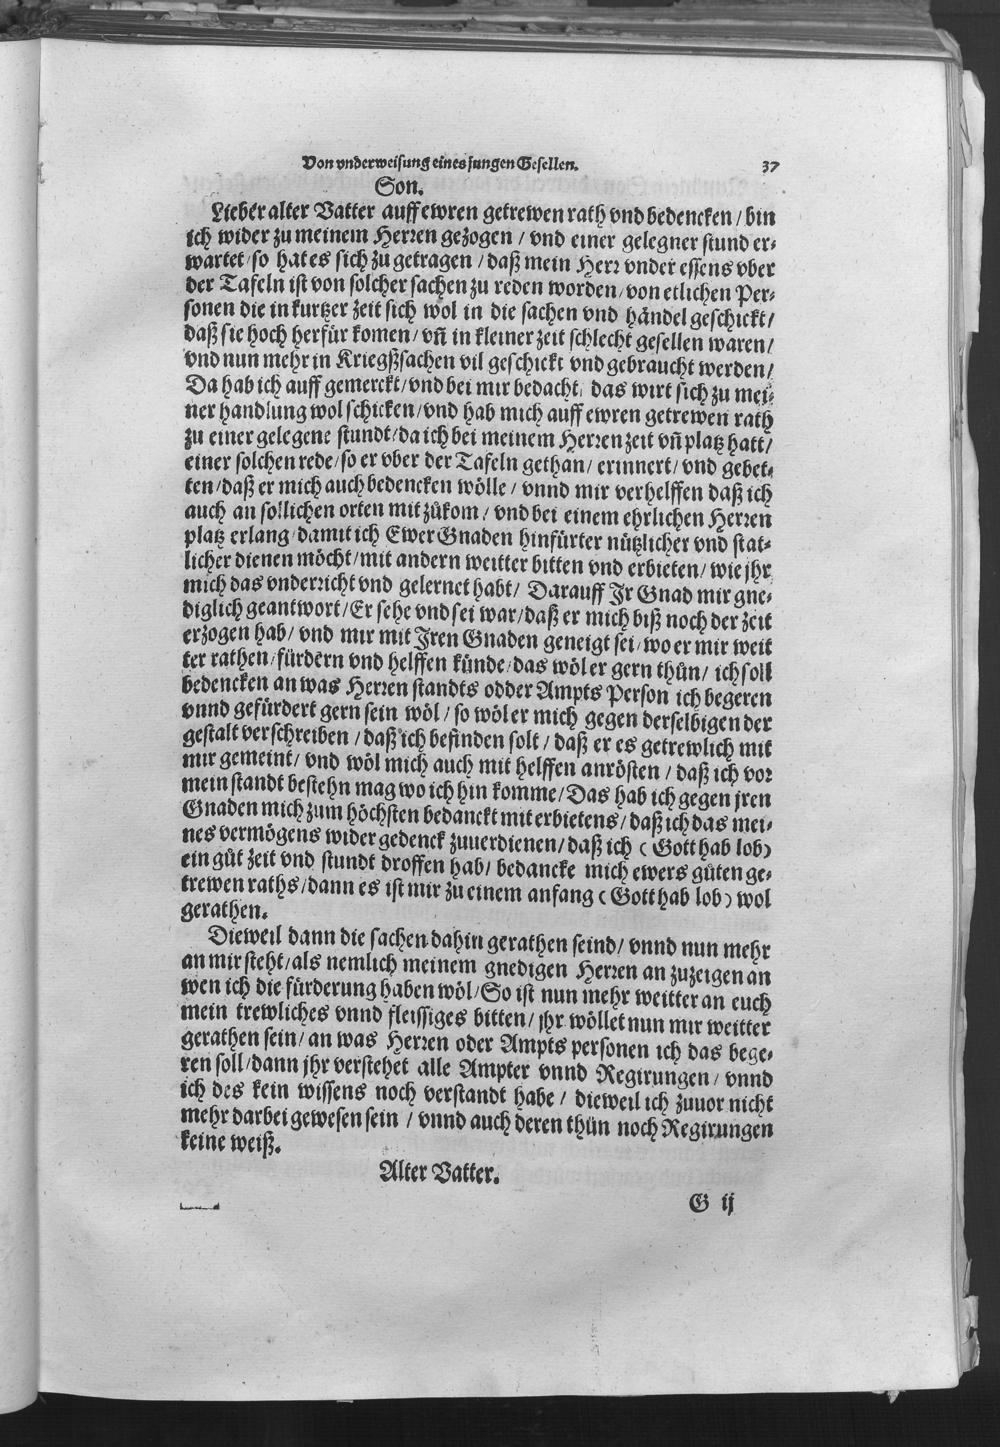 Von vnderweisung eines jungen Gesellen. 37
Son.
Lieber alter Vatter auff ewren getrewen rath vnd bedencken / bin
ich wider zu meinem Herren gezogen / vnd einer gelegner stund er⸗
wartet / so hat es sich zu getragen / daß mein Herr vnder essens vber
der Tafeln ist von solcher sachen zu reden worden / von etlichen Per⸗
sonen die in kurtzer zeit sich wol in die sachen vnd händel geschickt /
daß sie hoch herfür komen / vñ in kleiner zeit schlecht gesellen waren /
vnd nun mehr in Kriegßsachen vil geschickt vnd gebraucht werden /
Da hab ich auff gemerckt / vnd bei mir bedacht, das wirt sich zu mei⸗
ner handlung wol schicken / vnd hab mich auff ewren getrewen rath
zu einer gelegene stundt / da ich bei meinem Herren zeit vñ platz hatt /
einer solchen rede / so er vber der Tafeln gethan / erinnert / vnd gebet⸗
ten / daß er mich auch bedencken wölle / vnnd mir verhelffen daß ich
auch an sollichen orten mit zůkom / vnd bei einem ehrlichen Herren
platz erlang / damit ich Ewer Gnaden hinfürter nützlicher vnd stat⸗
licher dienen möcht / mit andern weitter bitten vnd erbieten / wie jhr
mich das vnderricht vnd gelernet habt / Darauff Ir Gnad mir gne⸗
diglich geantwort / Er sehe vnd sei war / daß er mich biß noch der zeit
erzogen hab / vnd mir mit Iren Gnaden geneigt sei / wo er mir weit
ter rathen / fürdern vnd helffen künde / das wöl er gern thůn / ich soll
bedencken an was Herren standts odder Ampts Person ich begeren
vnnd gefürdert gern sein wöl / so wöl er mich gegen derselbigen der
gestalt verschreiben / daß ich befinden solt / daß er es getrewlich mit
mir gemeint / vnd wöl mich auch mit helffen anrösten / daß ich vor
mein standt bestehn mag wo ich hin komme / Das hab ich gegen jren
Gnaden mich zum höchsten bedanckt mit erbietens / daß ich das mei⸗
nes vermögens wider gedenck zuuerdienen / daß ich ( Gott hab lob)
ein gůt zeit vnd stundt droffen hab / bedancke mich ewers gůten ge⸗
trewen raths / dann es ist mir zu einem anfang ( Gott hab lob) wol
gerathen.
Dieweil dann die sachen dahin gerathen seind / vnnd nun mehr
an mir steht / als nemlich meinem gnedigen Herren an zuzeigen an
wen ich die fürderung haben wöl / So ist nun mehr weitter an euch
mein trewliches vnnd fleissiges bitten / jhr wöllet nun mir weitter
gerathen sein / an was Herren oder Ampts personen ich das bege⸗
ren soll / dann jhr verstehet alle Ampter vnnd Regirungen / vnnd
ich des kein wissens noch verstandt habe / dieweil ich zuuor nicht
mehr darbei gewesen sein / vnnd auch deren thůn noch Regirungen
keine weiß.
Alter Vatter.
G ij